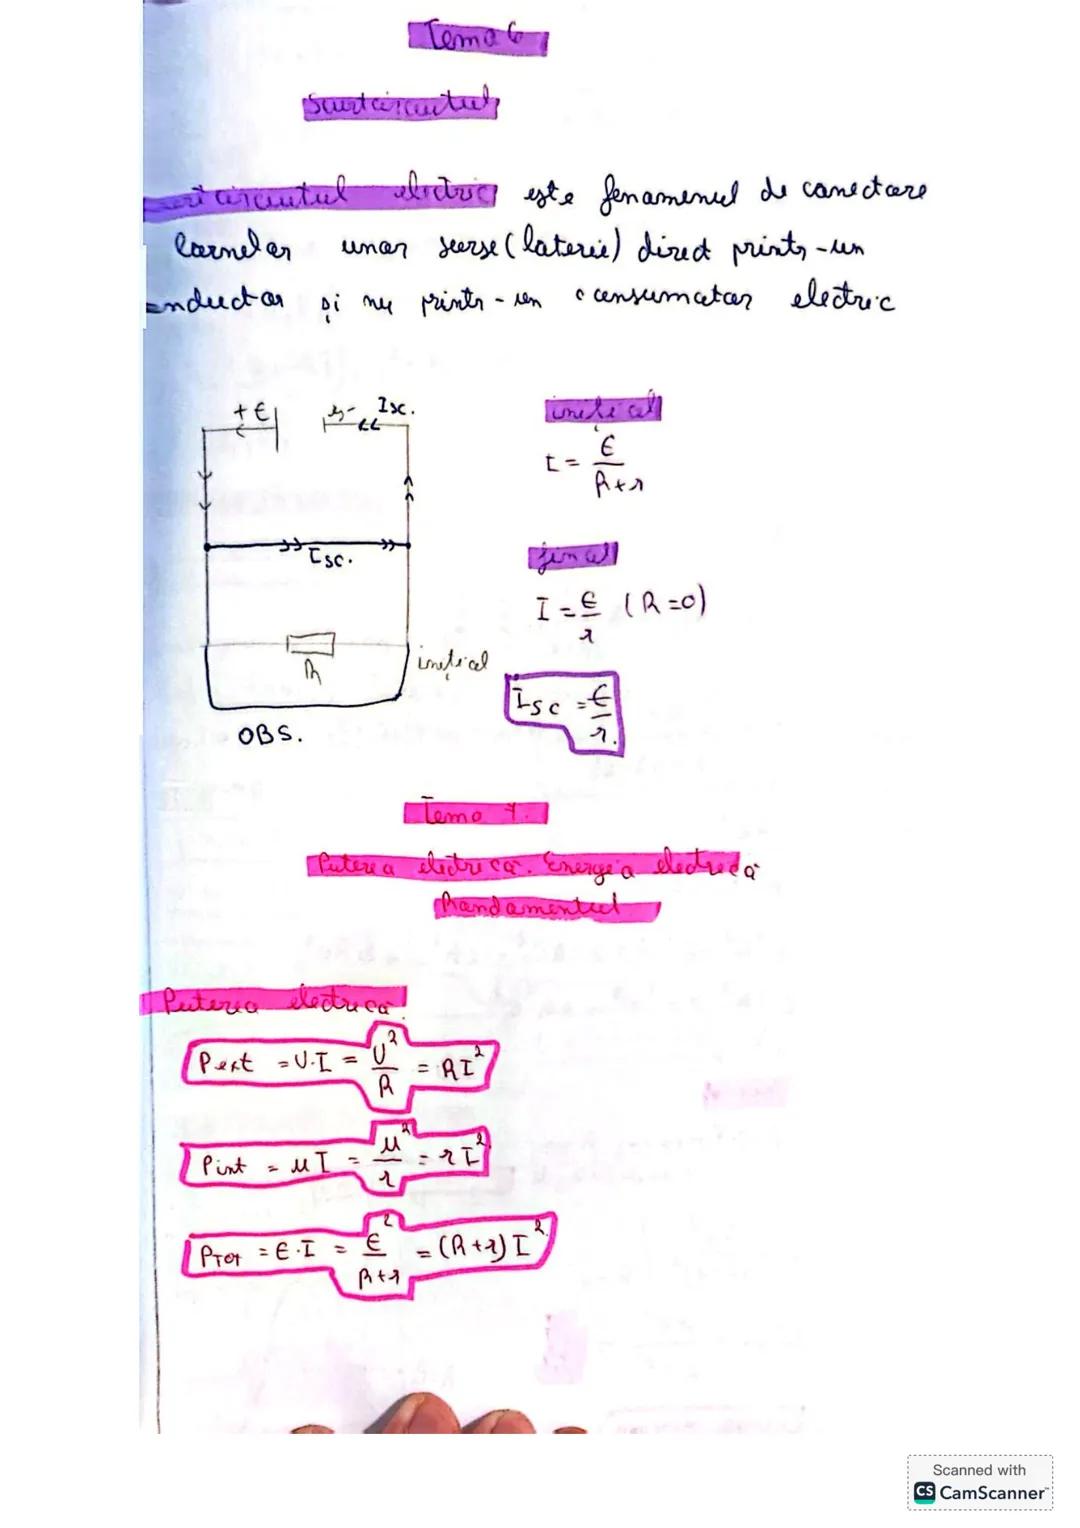 Tema 6
Scurtcircuitul
Scurtcircuitul electric este fenomenul de conectare
bornelor unor surse (baterie) direct printr-un
conductor și nu printr-un consumator electric
+ E
- Isc.
Isc.
R
inițial
OBS.
inițial
I = E/R+r
final
I = E/r (R=0)
Isc = E/r.
Tema 7.
Puterea electrică. Energia electrică
Randamentul
Puterea electrică.
Pext = U·I = U²/R = RI²
Pint = uI = u²/r = rI²
PTOT = E·I = E²/R+r = (R+r)I²
Scanned with
CS CamScanner